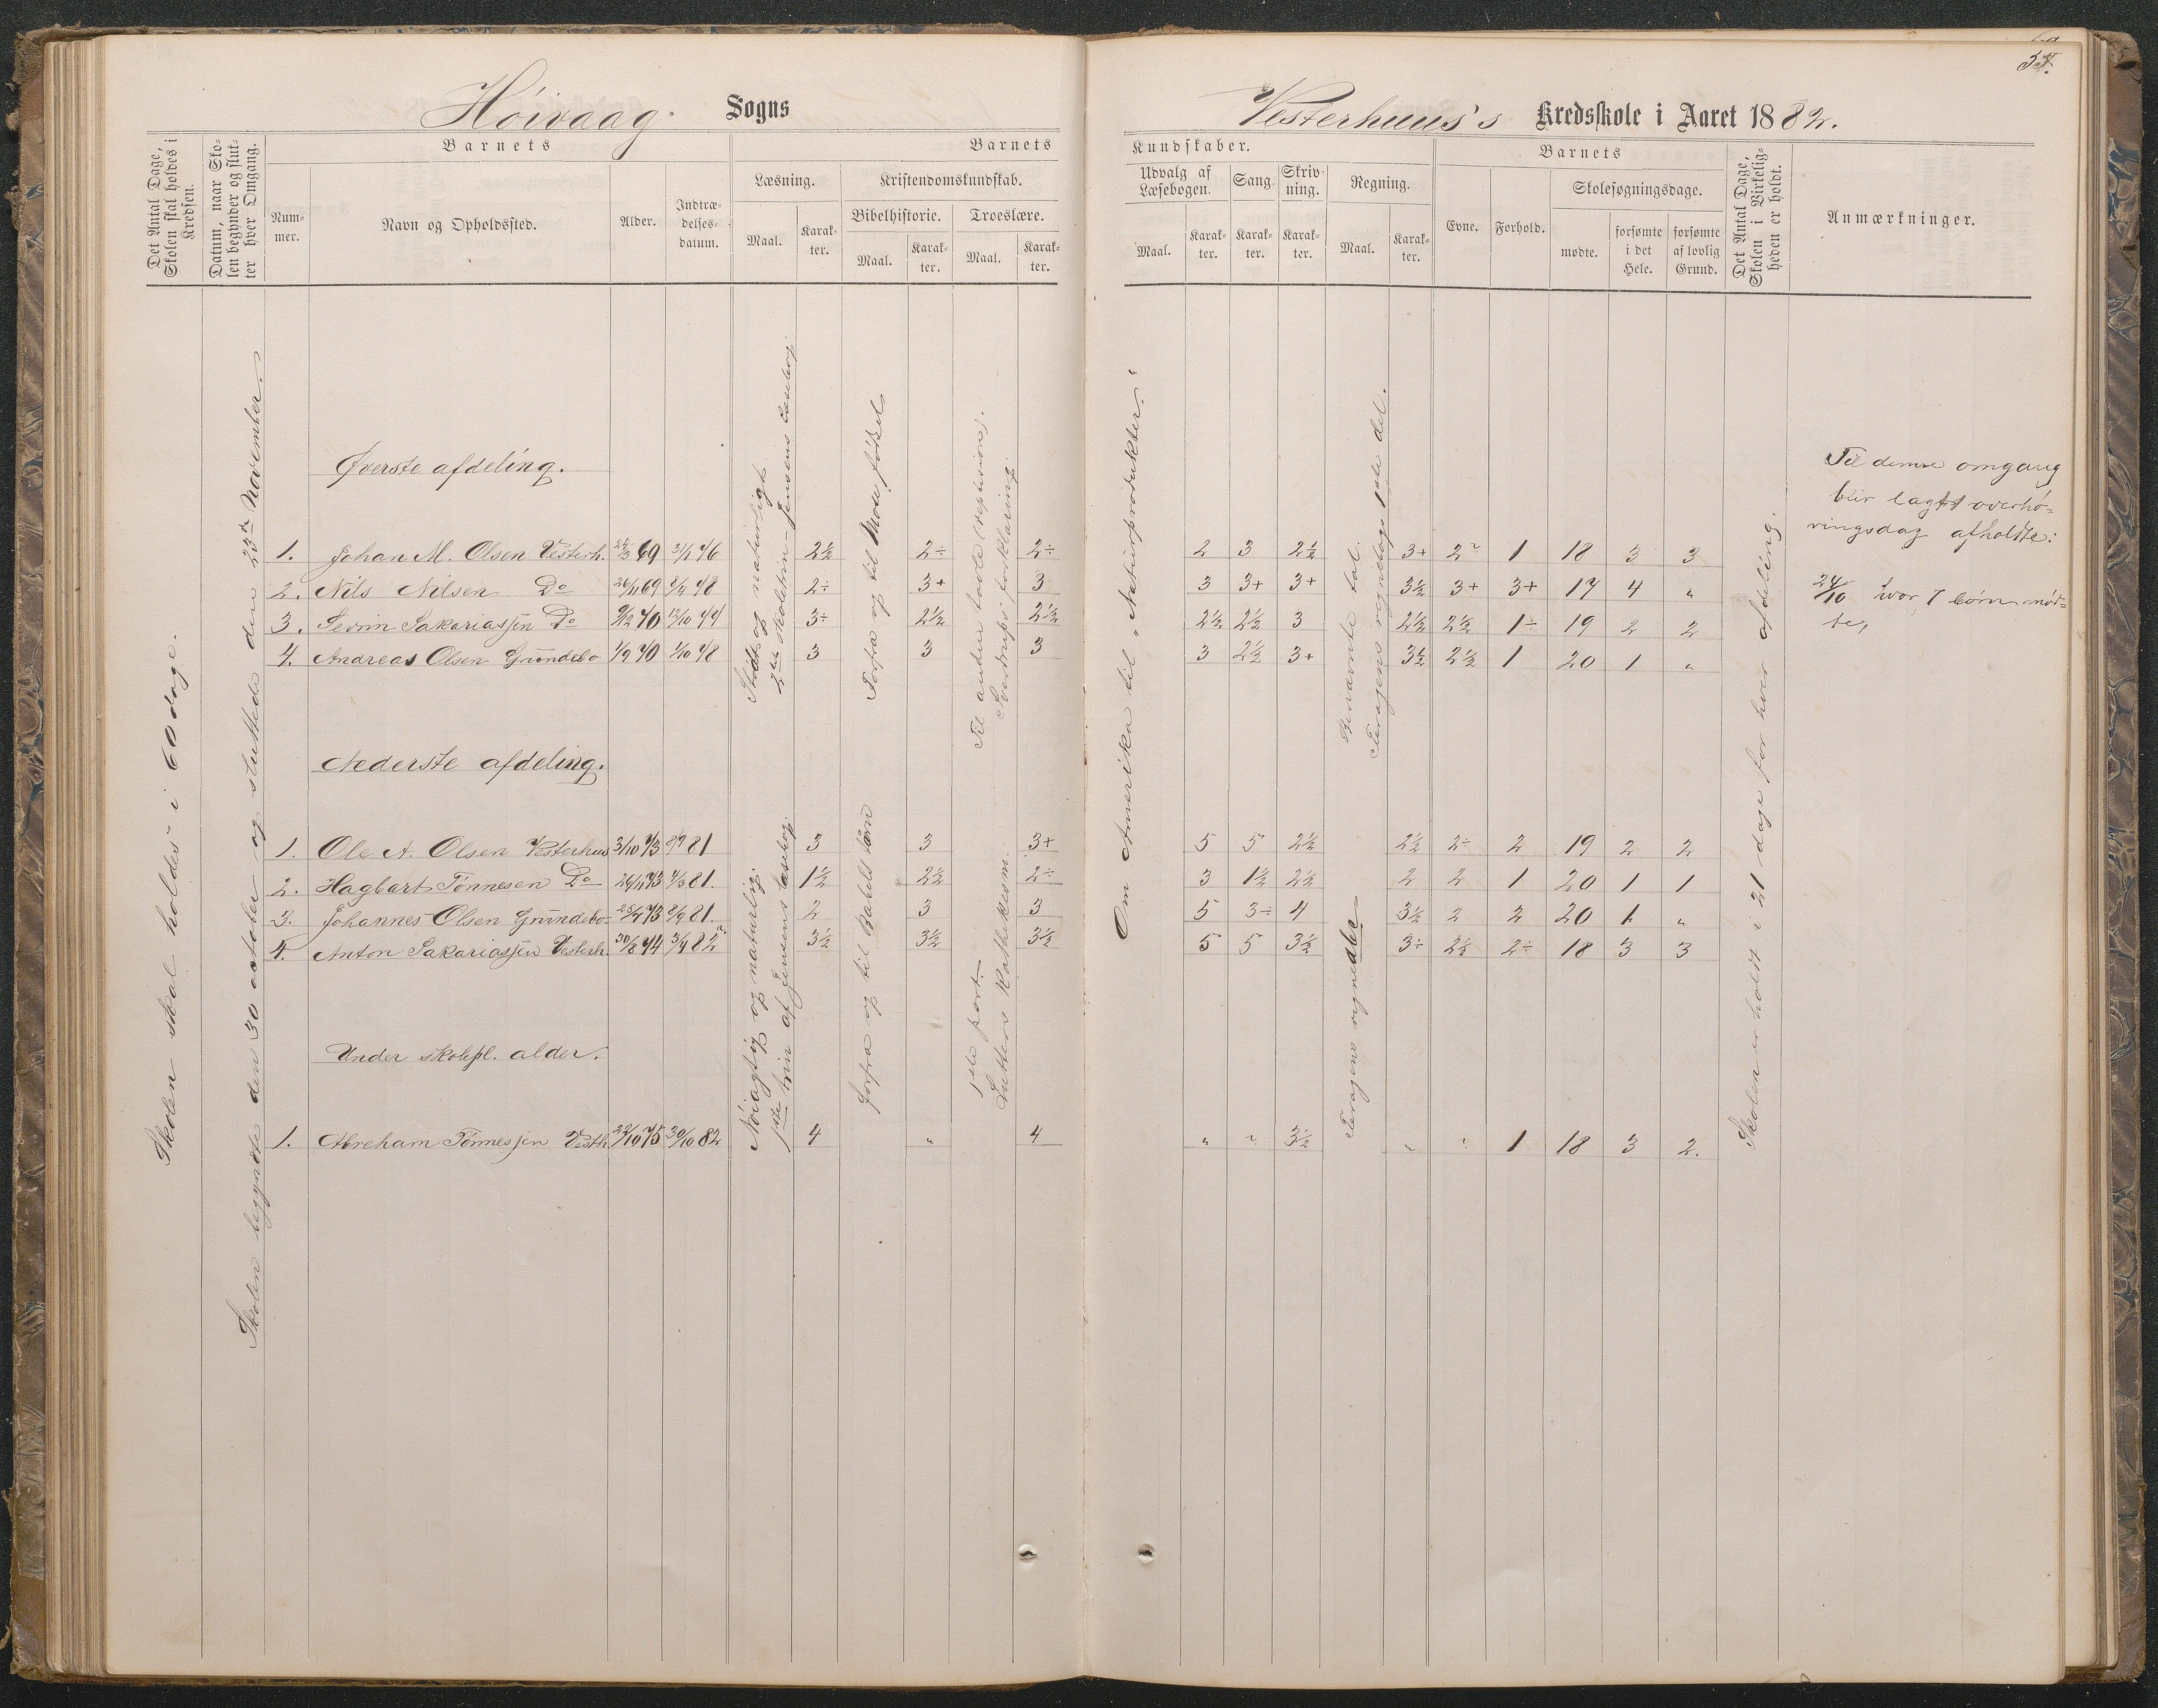 Høivaag. Sogns
Vesterhuus's Kredsskole i Aaret 1882.
Det Antal Dage, Skolen skal holdes i Kredsen.
Datum, naar Skolen begynder og slutter hver Omgang.
Barnets
Nummer.
Navn og Opholdssted.
Alder.
Indtrædelsesdatum.
Barnets
Læsning.
Maal.
Karakter.
Kristendomskundskab.
Bibelhistorie.
Maal.
Karakter.
Troeslære.
Maal.
Karakter.
Kundskaber.
Udvalg af Læsebogen.
Maal.
Karakter.
Sang.
Karakter.
Skrivning.
Karakter.
Regning.
Maal.
Karakter.
Barnets
Evne.
Forhold.
Skolesøgningsdage.
mødte.
forsømte i det Hele.
forsømte af lovlig Grund.
Det Antal Dage, Skolen i Virkeligheden er holdt.
Anmærkninger.
Skolen skal holdes i 60 dage.
Skolen begyndte den 30 october og sluttede den 23de November.
Øverste afdeling.
1. Johan M. Olsen Vesterh. 24/3 69 2½ 2÷ 2÷ 2 3 2½ 3+ 1 18 3 3
2. Nils Nilsen Do 26/11 69 2÷ 3+ 3 3 3+ 3+ 3½ 3+ 3+ 17 4 "
3. Sevrin Sakariassen Do 9/2 70 3÷ 2½ 2½ 2½ 2½ 3 2½ 2½ 1÷ 19 2 2
4. Andreas Olsen Grundebo 1/9 70 3 3 3 3 2½ 3+ 3½ 2½ 1 20 1 "
Stødt og naturligt
2det skoletrin – Jensens Læsebog.
Forfra og til Mose fødsel
Til anden tavle (repetision).
Sverdrups forklaring.
Om Amerika til „Naturprodukter."
Benævnte tal.
regnebogs 1ste del.
Nederste afdeling.
1. Ole A. Olsen Vesterhus 3/10 73 81 3 3 3+ 5 5 2½ 2½ 2÷ 2 19 2 2
2. Hagbart Tønnesen Do 26/11 73 4/3 81. 1½ 2½ 2÷ 3 1½ 2½ 2 2 1 20 1 1
3. Johannes Olsen Grundebo 25/4 73 8/9 81. 2 3 3 5 3÷ 4 3½ 2 2 20 1 "
4. Anton Sakariassen Vesterh. 30/8 74 3/4 82 3½ 3½ 3½ 5 5 3½ 3÷ 2½ 2÷ 18 3 3
Nøiagtig og naturlig.
1ste trin af Jensens Læsebog.
forfra og til Babels
1ste part.
Luthers Kathekesm.
regneabc
Under skolepl. alder.
1. Abreham Tønnessen Vesth. 22/10 75 30/10 82 4 " 4 " " 3½ " " 1 18 3 2.
Skolen er holdt i 21 dage for hver afdeling.
Til denne omgang
blir lagt overhø-
ringsdag afholdte:
24/10 hvor 7 børn mød-
te,